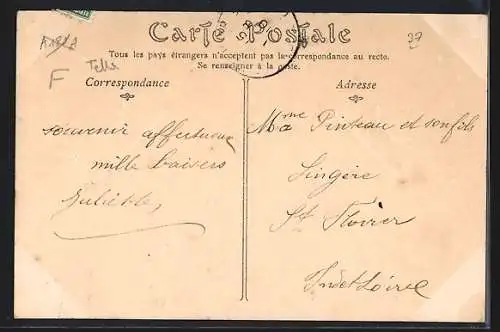 Carte Postale
Tous les pays étrangers n'acceptent pas la correspondance au recto.
Se renseigner à la poste.
77
F
Correspondance
souvenir affectueux
mille baisers
Juliette,
Adresse
Mme Pinteau et son fils
Lingère
St Flovier
Indre et Loire